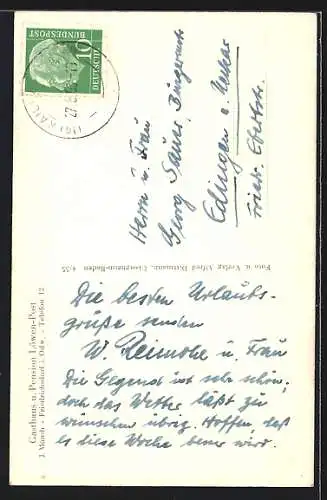 DEUTSCHE
BUNDESPOST
10
27.
Herrn u. Frau
Georg Sauer, Bürgermstr.
Edlingen a. Neckar
Friedr. Ebertstr.
Foto u. Verlag Alfred
4/55
Gasthaus u. Pension Löwen-Post
J. Münch - Friedrichsdorf i. Odw. - Telefon 12
Die besten Urlaubs-
grüße senden
W. u. Frau
Die Gegend ist sehr schön,
doch das Wetter läßt zu
wünschen übrig. Hoffen, daß
es diese Woche besser wird.